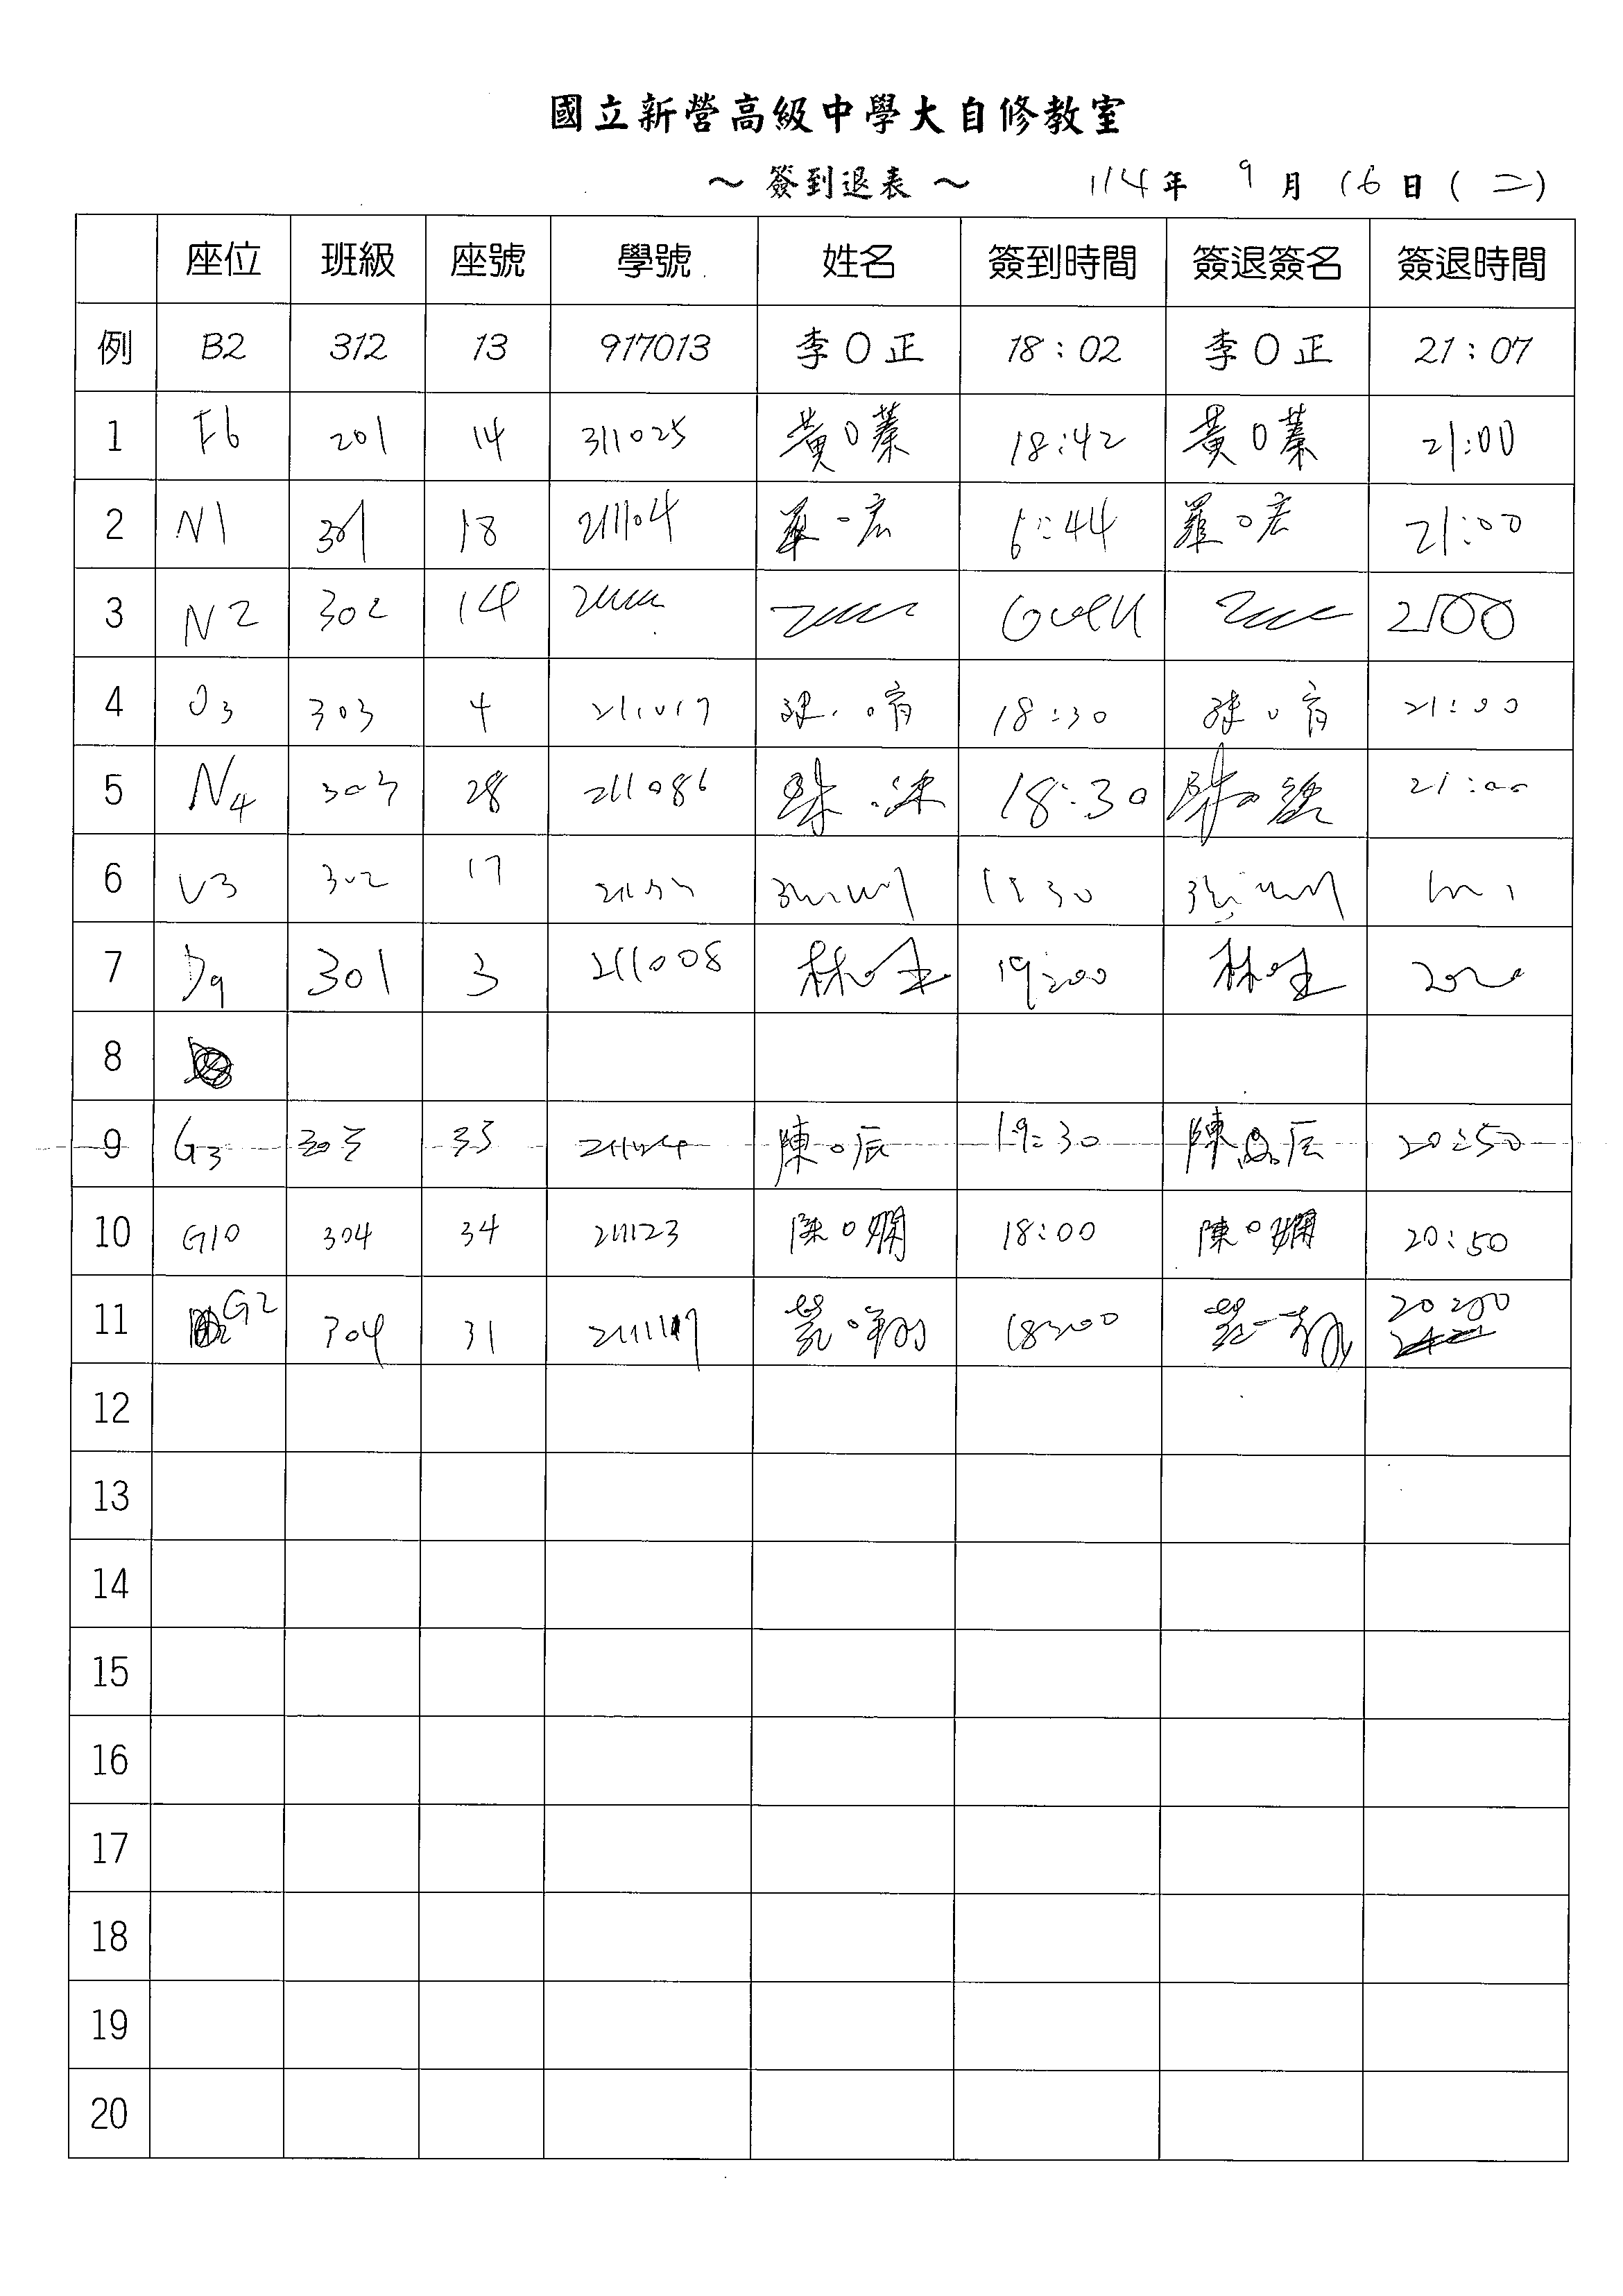 國立新營高級中學大自修教室
～簽到退表～ 114年 9月 16日(二)
座位 班級 座號 學號 姓名 簽到時間 簽退簽名 簽退時間
例 B2 312 13 917013 李O正 18:02 李O正 21:07
1 F6 201 14 311025 黃O蓁 18:42 黃O蓁 21:00
2 N1 301 18 211104 羅O宏 6:44 羅O宏 21:00
3 N2 302 14 2100
4 303 4 211017 18:30 21:00
5 N4 303 28 211086 18:30 21:00
6 302 17 30
7 D9 301 3 211008 林O 19:00 林O
8
9 G3 303 33 陳O辰 19:30 陳O辰 20:50
10 G10 304 34 211123 陳O嫻 18:00 陳O嫻 20:50
11 G2 304 31 18:00
12
13
14
15
16
17
18
19
20